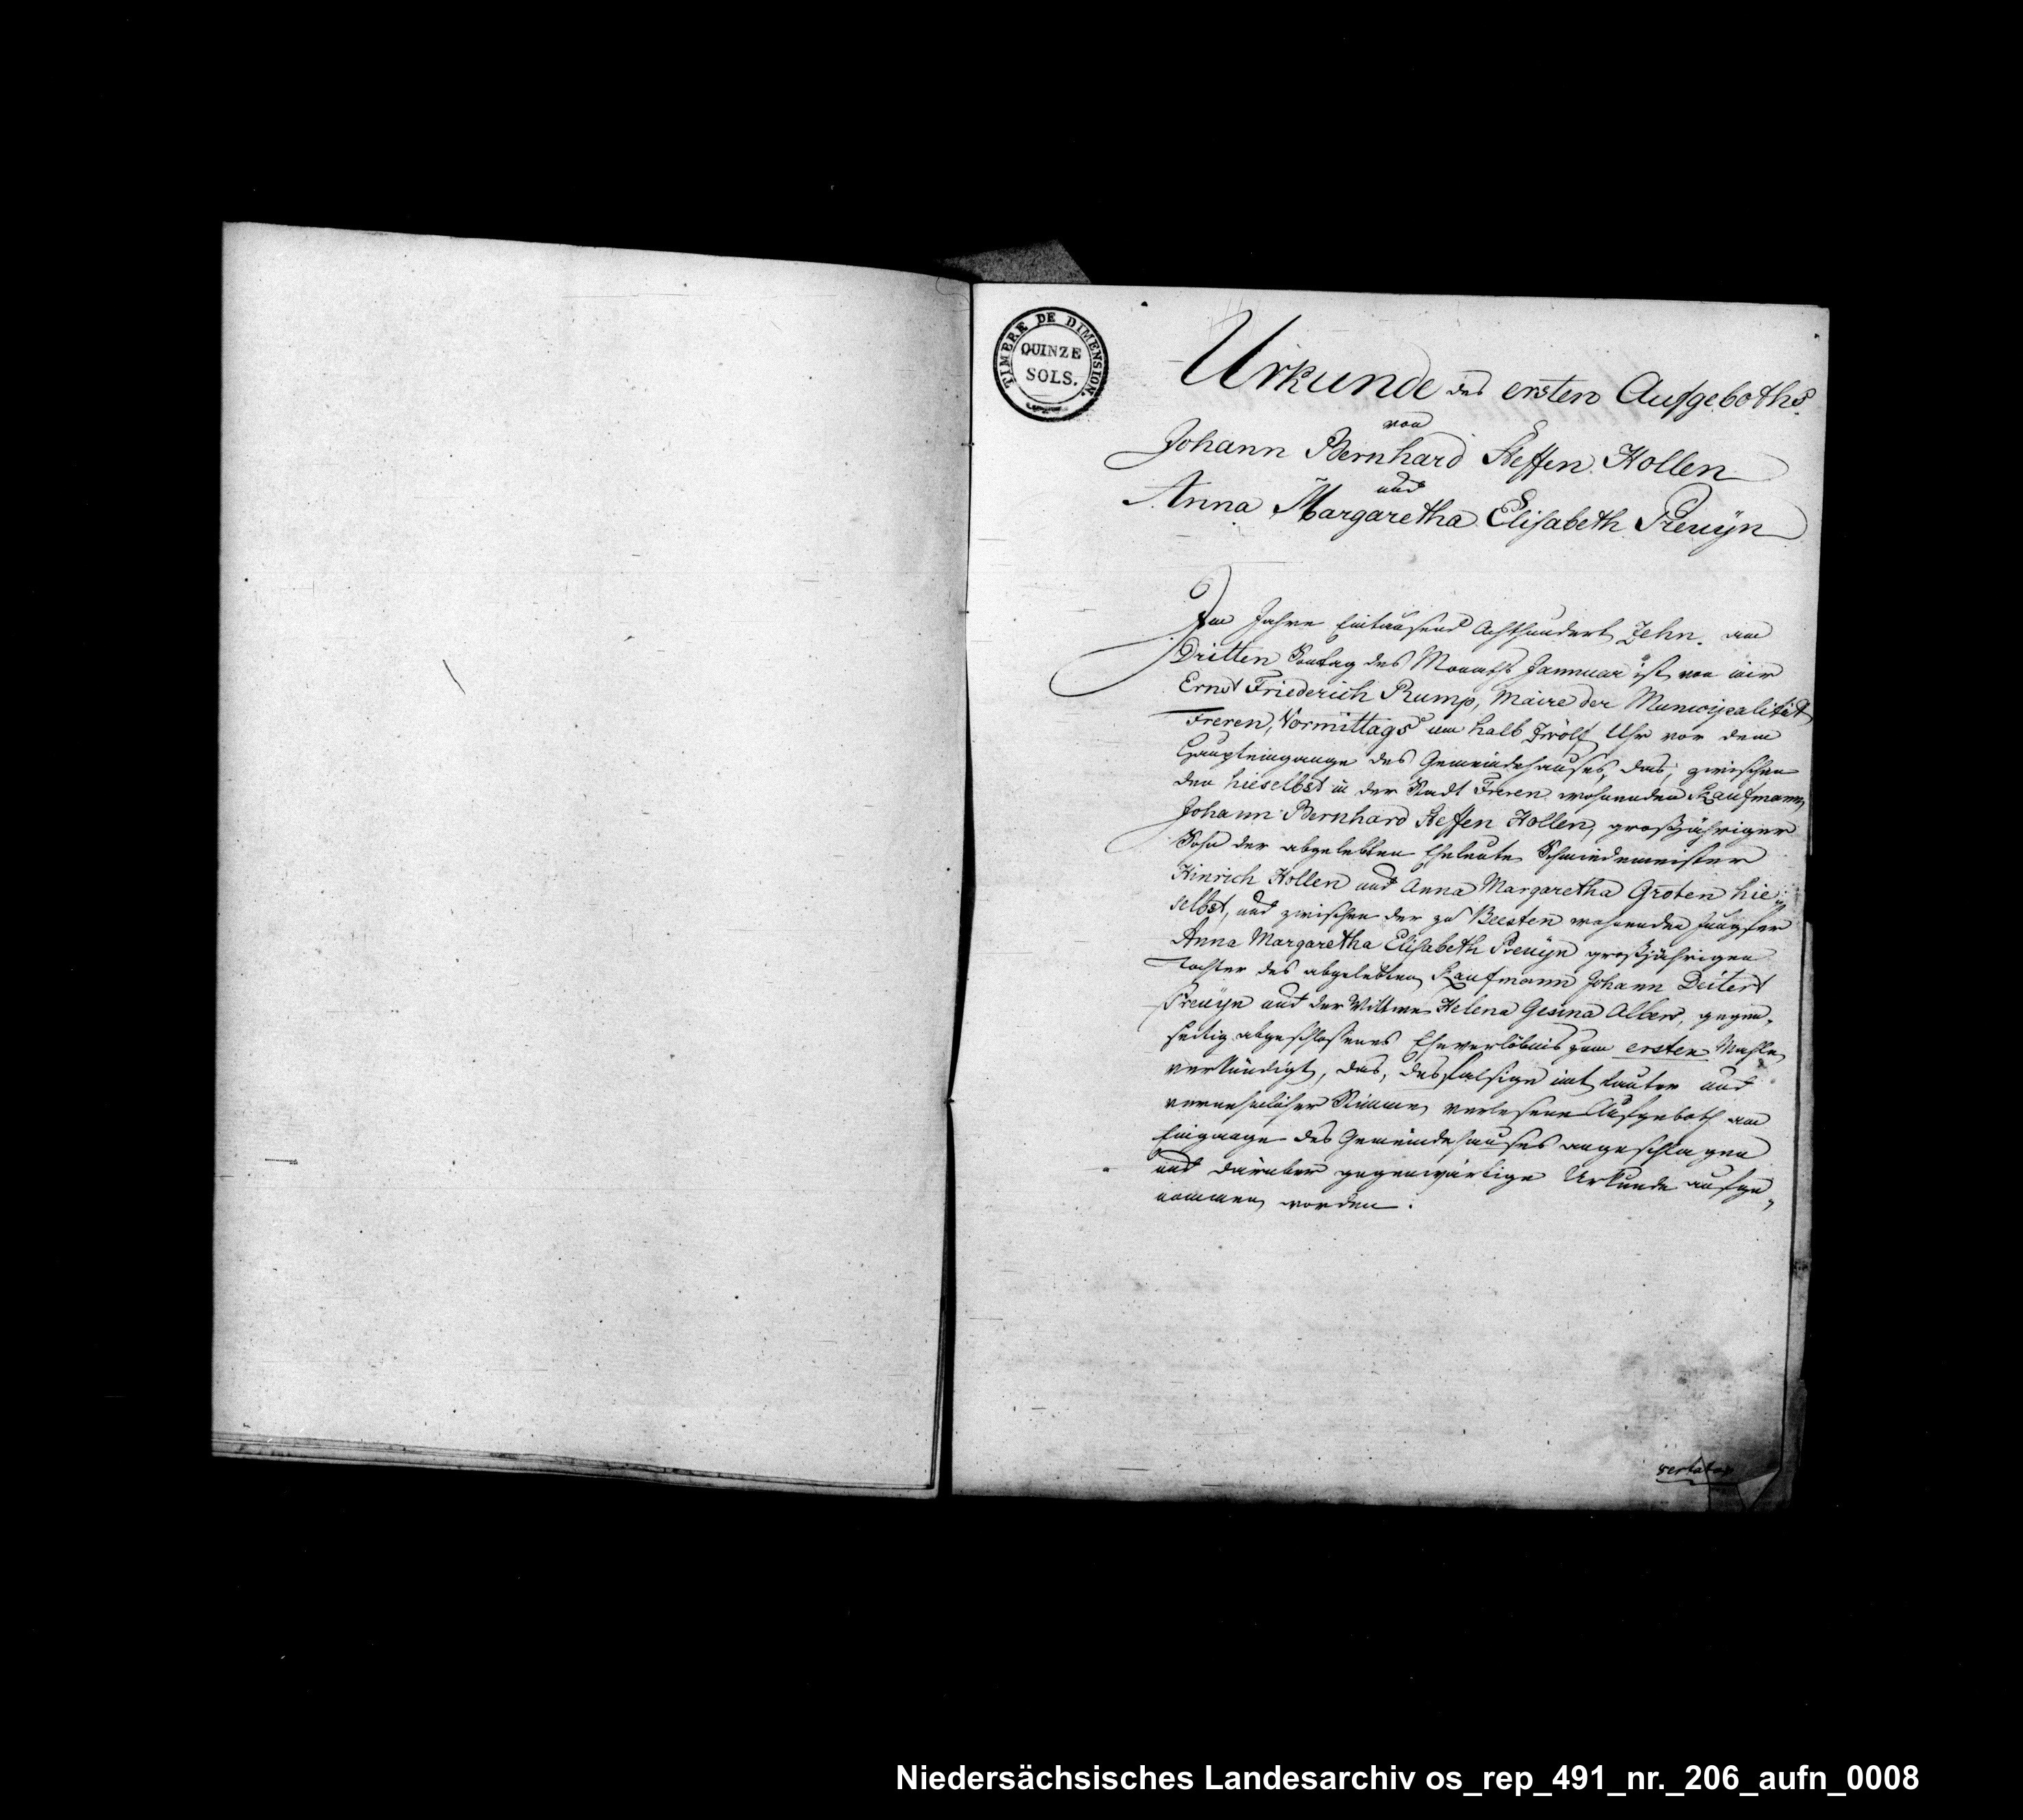 TIMBRE DE DIMENSION.
QUINZE
SOLS.
Urkunde des ersten Aufgeboths
von
Johann Bernhard Steffen Hollen
und
Anna Margaretha Elisabeth Preuÿn
Im Jahre Eintausend Achthundert Zehn. am
Dritten Sontag des Monaths Jannuar ist von mir
Ernst Friederich Rump, Maire der Municipalität
Freren, Vormittags um halb Zwölf Uhr vor dem
Haupteingange des Gemeindehauses, das, zwischen
den hieselbst in der Stadt Freren wohnenden Kaufmann
Johann Bernhard Steffen Hollen, großjähriger
Sohn der abgelebten Eheleute Schmiedemeister
Hinrich Hollen und Anna Margaretha Groten hie-
selbst, und zwischen der zu Beesten wohnenden Jungfer
Anna Margaretha Elisabeth Preuÿn großjährigen
Tochter des abgelebten Kaufmann Johann Deitert
Preuÿn und der Wittwe Helena Gesina Albers, gegen-
seitig abgeschlossenes Eheverlöbnis zum ersten Mahle
verkündigt, das, desfalsige mit lauter und
vernehmlicher Stimme verlesene Aufgeboth am
Eingange des Gemeindehauses angeschlagen
und darüber gegenwärtige Urkunde aufge-
nommen worden.
vertatur
Niedersächsisches Landesarchiv os_rep_491_nr._206_aufn_0008